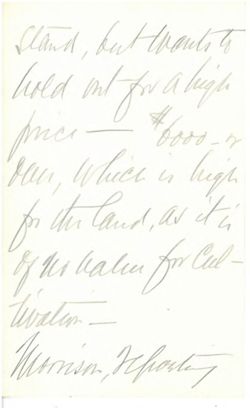 stand, but wants to
hold out for a high
price — $6000 — or
, which is high
for the land, as it is
of no value for Cul-
tivation —
Morrison,